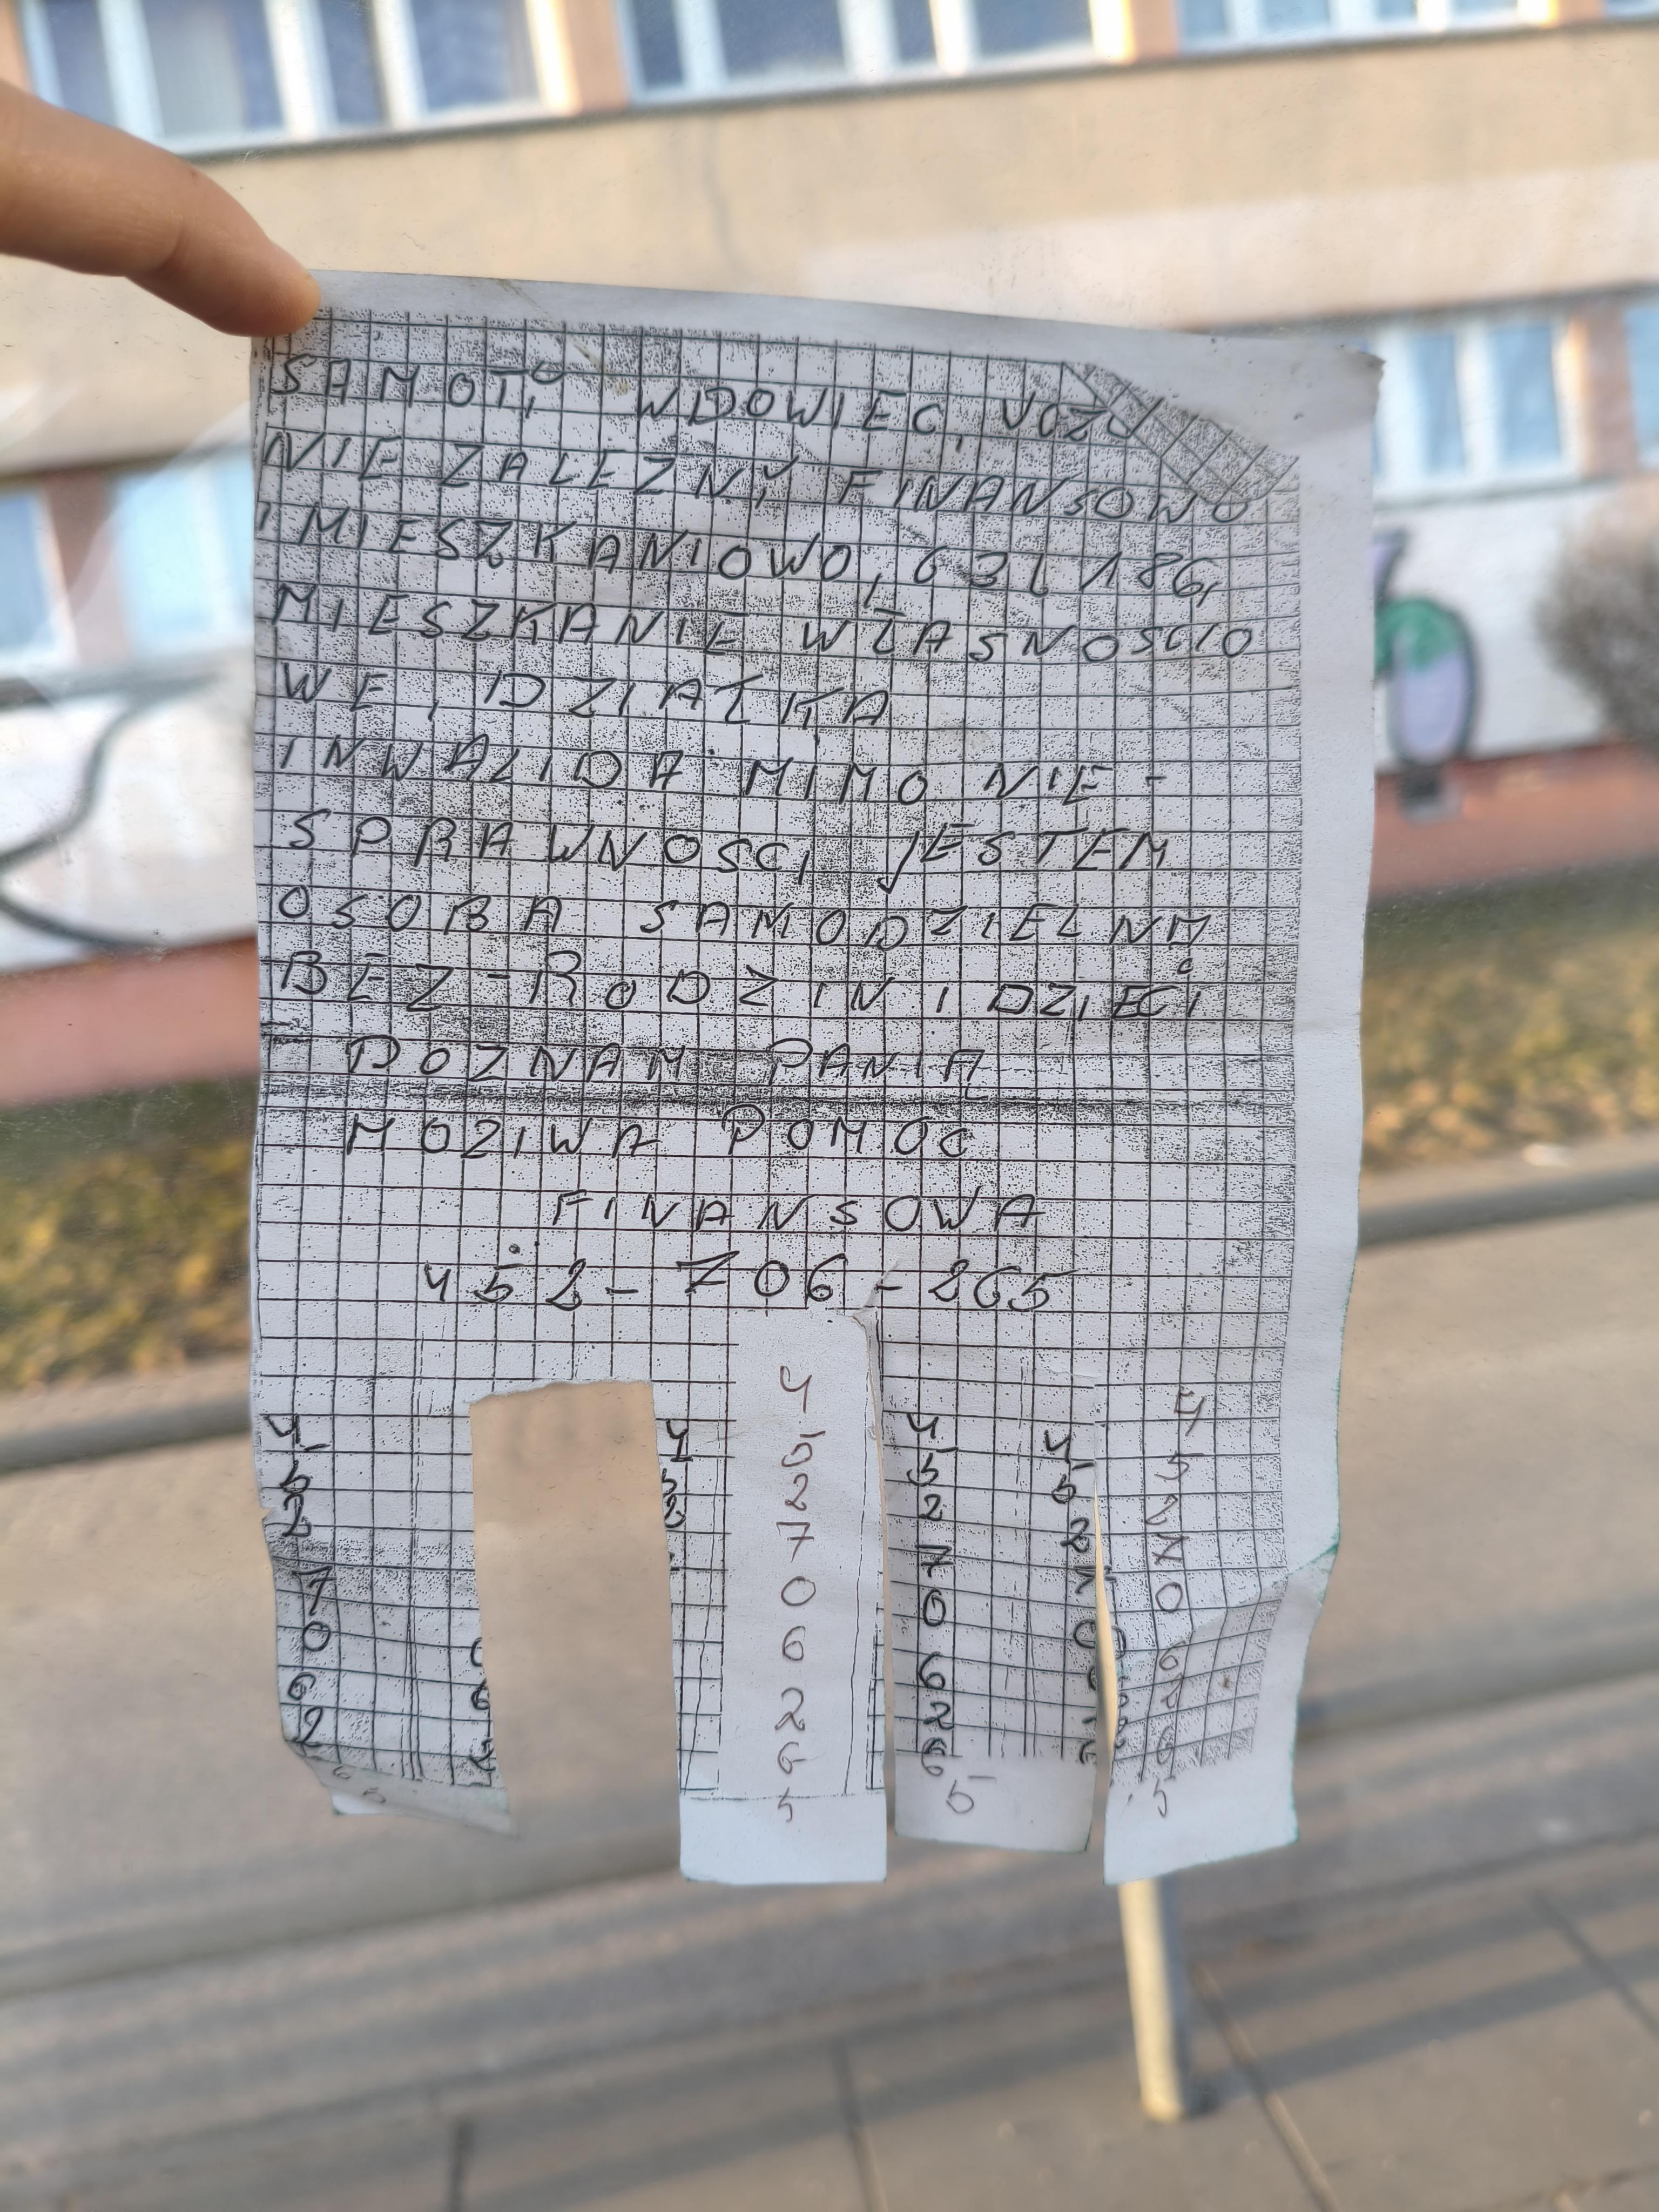 SAMOTY WDOWIEC, UCZU
NIE ZALEZNY FINANSOWO
I MIESZKANIOWO, 63 L 186,
MIESZKANIE WŁASNOSCIO
WE, DZIAŁKA
INWALIDA MIMO NIE-
SPRAWNOSCI JESTEM
OSOBA SAMODZIELNA
BEZ-RODZIN I DZIECI
POZNAM PANIĄ
MOZIWA POMOC
FINANSOWA
452-706-265
452706265
452706265
452706265
452706265